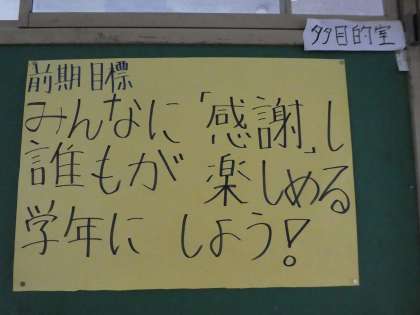 多目的室
前期目標
みんなに「感謝」し
誰もが 楽しめる
学年に しよう!